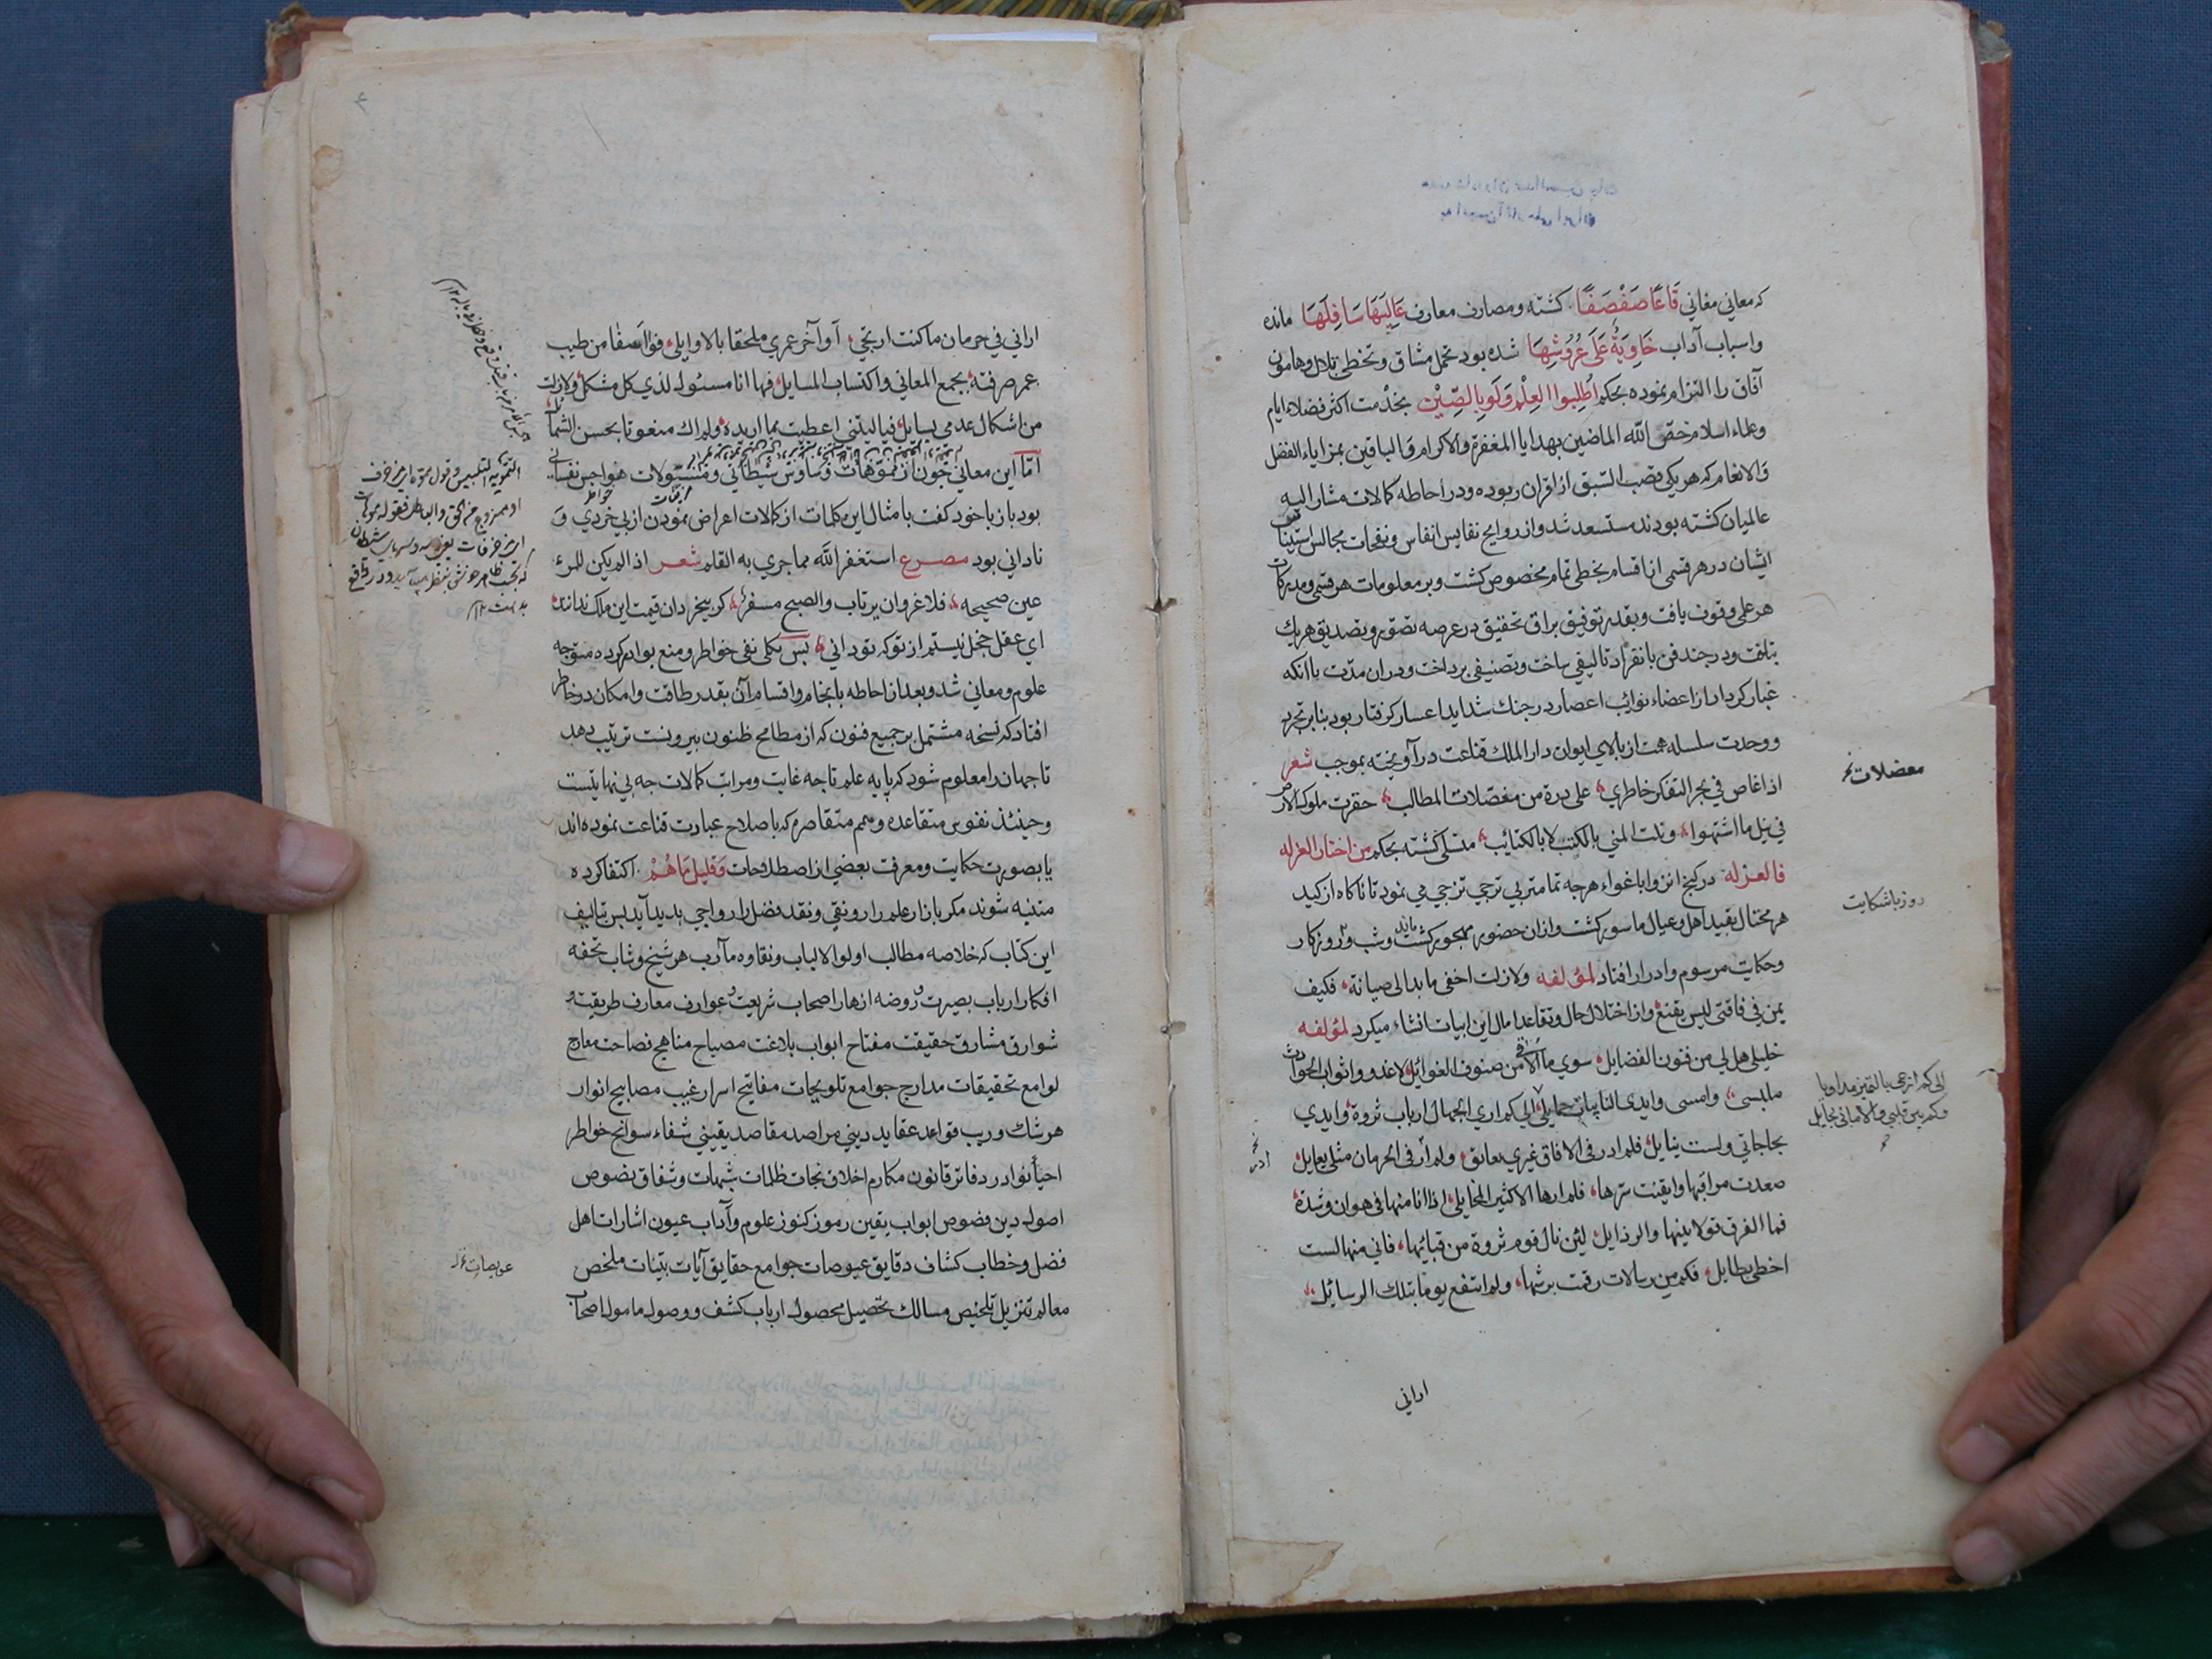 که معاني مغاني قَاعًا صَفْصَفًا کشته و مصارف معارف عَالِيَهَا سَافِلَهَا مانده
و اسباب آداب خَاوِيَةٌ عَلَى عُرُوشِهَا شده بود تحمل مشاق و تخطی تلال و هامون
آفاق را التزام نموده بحکم اُطْلِبُوا العِلْمَ وَلَو بِالصِّيْنِ بخدمت اکثر فضلاء ایام
و علماء اسلام خصّ الله الماضین بهدایا المغفرة والاکرام والباقین بمزایاء الفضل
والانعام که هر یکی قصب السبق از اقران ربوده و در احاطه کمالات مشار الیه
عالمیان کشته بودند مستسعد شد و از روایح نفایس انفاس و نفحات مجالس
ایشان در هر قسمی از اقسام بحظی تمام مخصوص کشت و بر معلومات هر قسمی و مدرکات
هر علمی وقوف یافت و بقدر توفیق براق تحقیق در عرصه تصور و تصدیق هر یک
بتاخت و در چند فن بانفراد تالیفی ساخت و تصنیفی برداخت و در ان مدت با انکه
غبار کردار از اعضاء نوائب اعصار در جنک شداید اعسار کرفتار بود بنا بر تجرید
و وحدت سلسله همت از بالای ایوان دار الملک قناعت در آویخته بموجب شعر
اذا غاص في بحر التفکر خاطري علی درة من مغضلات المطالب حقرت ملوک الارض
في نیل ما اشتهوا ونلت المني بالکتب لا بالکتائب متسلی کشته بحکم من اختار العزله
فالعزله در کنج انزوا باغواء هرچه تمامتر بی ترجی تزجي مي نمود تا ناکاه از کید
هر محتال بقید اهل و عیال ماسور کشت و از ان حضور مهجور کشت و شب و روز کار
وحکایت مرسوم وادرار افتاد لمؤلفه ولازلت اخفی ما بدا لی صیانة فکیف
بمن في فاقتی لیس یقنع و از اختلال حال و تقاعد امال این ابیات انشاء میکرد لمؤلفه
خلیلي هل لي من فنون الفضایل سوي ما الاقي من صنوف الغوائل لاغدو واثواب الحوادث
ملبسی وامسی وایدی النایبات حمایلی الی کم اری الجهال ارباب ثروة وایدي
بحاجاتي ولست بنایل فلم ادر فی الافاق غیری بعایق ولم ار فی الحرمان مثلي بعایل
صعدت مراقیها وایقنت سرها فلم ارها الا کثیر المخایل اذا انا منها في هوان وشدة
فما الفرق قولا بینها والرذایل لئن نال قوم ثروة من قبائها فاني منها لست
احظی بطایل فکم من رسالات رقمت برسمها ولم انتفع یوما بتلک الرسائل
اراني
معضلات
روز باشکایت
الی کم ازجی بالتمنی مداویا
وکم بین قلبي والاماني بحایل
اراني في حرمان ما کنت ارتجي آواخر عمري ملحقا بالاوایل فوا اسفا من طیب
عمر صرفته بجمع المعاني واکتساب المسایل فها انا مسئول لذي کل مشکل ولازلت
من اشکال عدمي بسایل فیالیتني اعطیت مما اریده ولم اك منعوتا بحسن الشمایل
اما این معاني چون از مموهات وساوس شیطاني و مسولات هواجس نفساني
بود باز با خود کفت بامثال این کلمات از کمالات اعراض نمودن از بی خردي و
ناداني بود مصرع استغفر الله مما جري به القلم شعر اذا لم یکن للمرء
عین صحیحه فلا غرو ان یرتاب والصبح مسفر کر بیخردان قیمت این ملک ندانند
ای عقل خجل نیستم از تو که تو داني بس بکلی نفی خواطر و منع بوادر کرده متوجه
علوم و معاني شد و بعد از احاطه بانجام و اقسام آن بقدر طاقت و امکان در خاطر
افتاد که نسخه مشتمل بر جمیع فنون که از مطامح ظنون بیرونست ترتیب دهد
تا جهان را معلوم شود که پایه علم تا چه غایت و مراتب کمالات چه بی نهایتست
و حینئذ نفوس متقاعده و همم متقاصره که باصلاح عبارت قناعت نموده اند
یا بصورت حکایت و معرفت بعضي از اصطلاحات وَقَلِيلٌ مَا هُمْ اکتفا کرده
متنبه شوند مکر بازار علم را رونقي و نقد فضل را رواجي پدید آید بس تالیف
این کتاب که خلاصه مطالب اولوا الالباب و نقاوه مآرب هر شیخ و شاب تحفه
افکار ارباب بصیرت و روضه ازهار اصحاب شریعت و عوارف معارف طریقت و
شوارق مشارق حقیقت مفتاح ابواب بلاغت مصباح مناهج فصاحت معارج
لوامع تحقیقات مدارج جوامع تلویحات مفاتیح اسرار غیب مصابیح انوار
هر شك و ریب قواعد عقاید دیني مراصد مقاصد یقیني شفاء سوانح خواطر
احیاء نوادر دفاتر قانون مکارم اخلاق نجات ظلمات شبهات و شقاق نصوص
اصول دین فصوص ابواب یقین رموز کنوز علوم و آداب عیون اشارات اهل
فضل و خطاب کشاف دقایق عیوصات جوامع حقایق آیات بینات ملخص
معالم تنزیل تلخیص مسالك تحصیل محصول ارباب کشف و وصول مامول اصحاب
عویصات